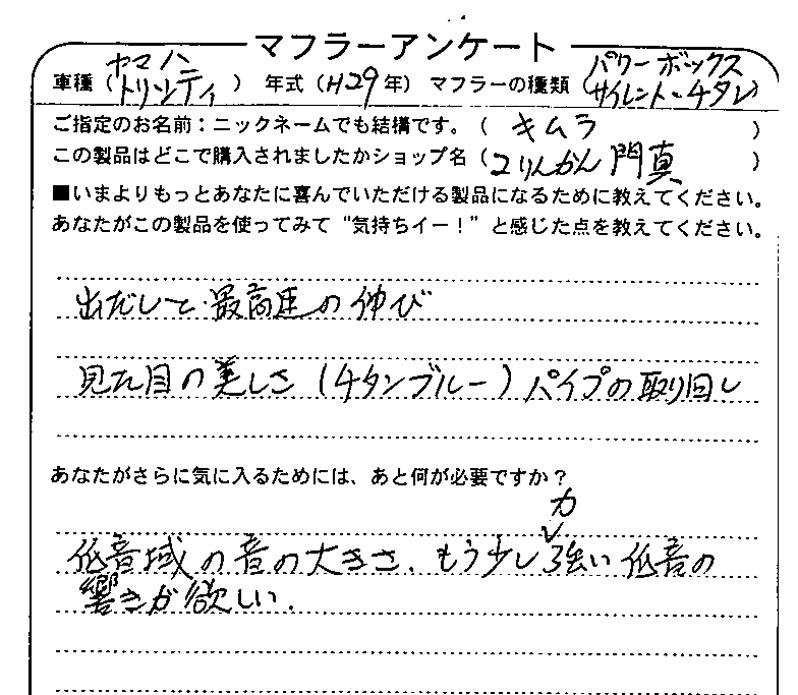 マフラーアンケート
車種（ヤマハ トリシティ） 年式（H29年） マフラーの種類（パワーボックス サイレント・チタン）
ご指定のお名前：ニックネームでも結構です。（ キムラ ）
この製品はどこで購入されましたかショップ名（2りんかん 門真 ）
■いまよりもっとあなたに喜んでいただける製品になるために教えてください。
あなたがこの製品を使ってみて "気持ちイー！" と感じた点を教えてください。
出だしと・最高速の伸び
見た目の美しさ（チタンブルー）パイプの取り回し
あなたがさらに気に入るためには、あと何が必要ですか？
低音域の音の大きさ．もう少し力強い低音の
響きが欲しい．